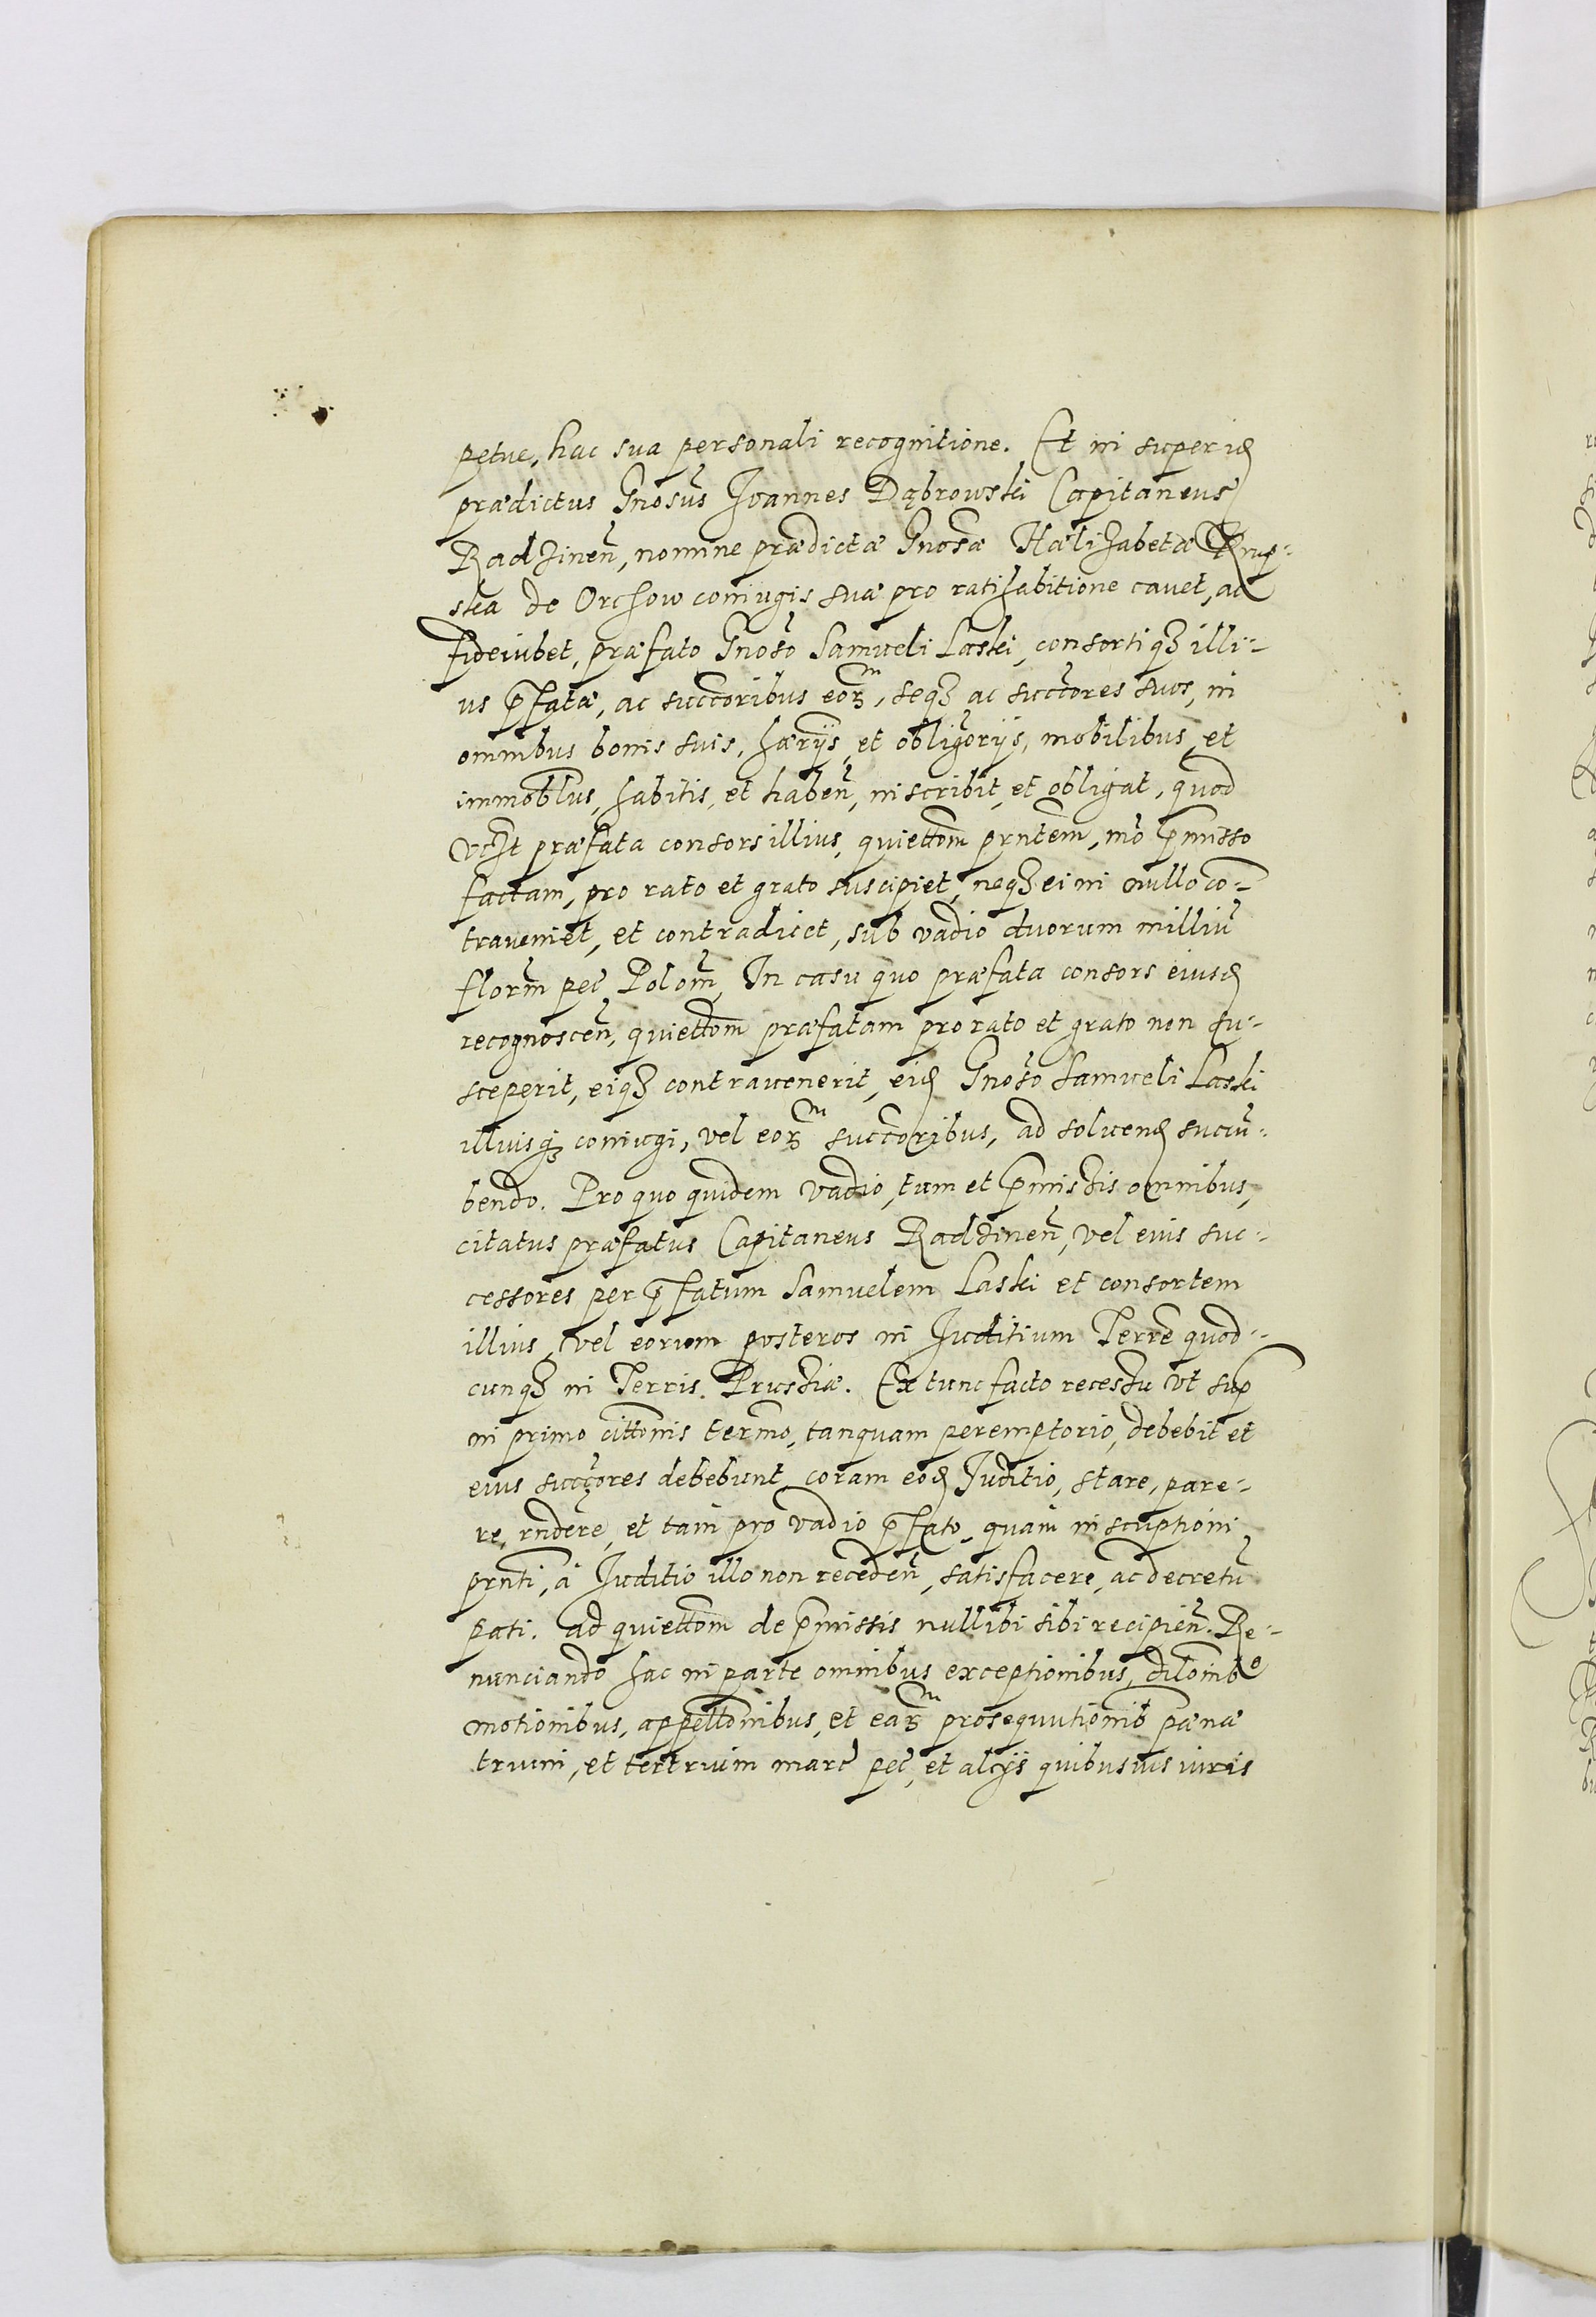 petue, hac sua personali recognitione. Et in super idē
prædictus Gnosus Ioannes Dąbrowski Capitaneus
Radzinen̄, nomine prædictæ Gnosæ Hælizabetæ Krup-
ska de Orchow coniugis suæ pro ratihabitione cauet, ac
fideiubet, præfato Gnoso Samueli Laski, consortiqꝫ illi-
us p̄fatæ, ac succ̄oribus eoꝝ, seqꝫ ac succ̄ores suos, in
omnibus bonis suis, hærijs, et obligōrijs, mobilibus, et
immobl̄us, habitis, et haben̄, inscribit, et obligat, quod
præfata consors illius, quiettōm prn̄tem, mō p̄misso
factam, pro rato et grato suscipiet, neqꝫ ei in nullo co-
traueniet, et contradicet, sub vadio duorum milliū
florm̄ pec̄ Polom̄, In casu quo præfata consors eiusdē
recognoscen̄, quiettōm præfatam pro rato et grato non su-
sceperit, eiqꝫ contrauenerit, eidē Gnoso Samueli Laski
illiusqꝫ coniugi, vel eoꝝ succ̄oribus, ad soluendē succū-
bendo. Pro quo quidem vadio, tum et p̄missis omnibus,
citatus præfatus Capitaneus Radzinen̄, vel eius suc-
cessores per p̄fatum Samuelem Laski et consortem
illius, vel eorum posteros in Iuditium Terre quod-
cunqꝫ in Terris Prussiæ. Ex tunc facto recessu vt sup
in primo cittōnis termo, tanquam peremptorio, debebit et
eius succ̄ores debebunt coram eodē Iuditio, stare, pare-
re, rndere, et tam pro vadio p̄fato, quam inscriptioni
prn̄ti, a Iuditio illo non receden̄, satisfacere, ac decretū
pati. ad quiettōm de p̄missis nullibi sibi recipien̄. Re-
nunciando hac in parte omnibus exceptionibus, dilōnibꝰ
motionibus, appellōnibus, et eaꝝ prosequutionib pænæ
trium, et ter trium marc̄ pec̄, et alijs quibusuis iuris